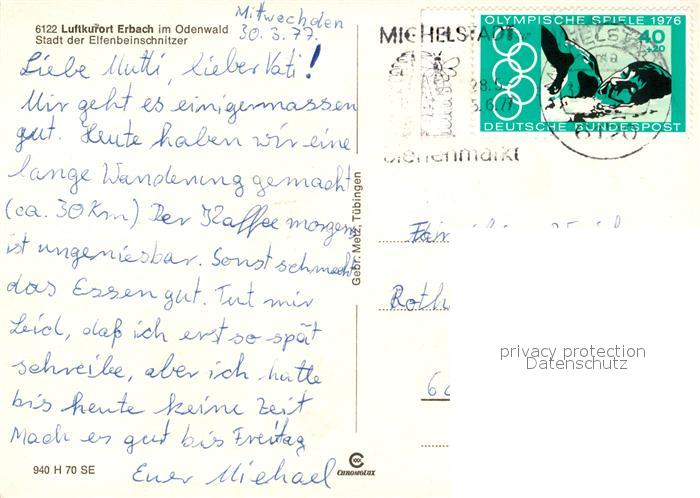 6122 Luftkurort Erbach im Odenwald
Stadt der Elfenbeinschnitzer
Mittwochden
30.3.77.
Liebe Mutti, lieber Vati!
Mir geht es einigermassen
gut. Heute haben wir eine
lange Wanderung gemacht
(ca. 30 Km) Der Kaffee morgens
ist ungeniesbar. Sonst schmeckt
das Essen gut. Tut mir
Leid, daß ich erst so spät
schreibe, aber ich hatte
bis heute keine Zeit
Mach es gut bis Freitag
Euer Michael
940 H 70 SE
CHROMOLUX
Gebr. Metz, Tübingen
MICHELSTADT
28.5.
5.6.77
Bienenmarkt
OLYMPISCHE SPIELE 1976
40
+20
DEUTSCHE BUNDESPOST
6120
Roth
privacy protection
Datenschutz